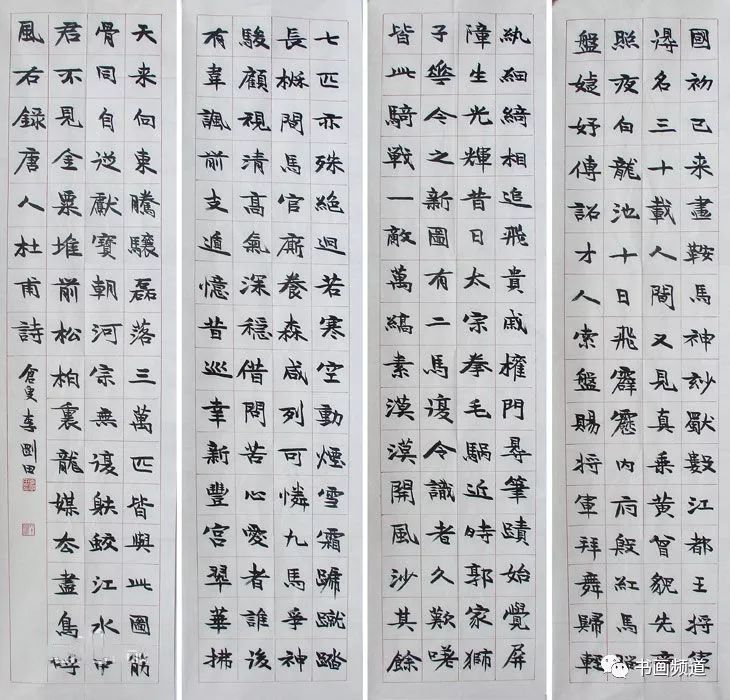 國初已來畫鞍馬神玅獨數江都王將軍
得名三十載人間又見真乘黃曾貌先帝
照夜白龍池十日飛霹靂內府殷紅馬腦
盤婕妤傳詔才人索盤賜將軍拜舞歸輕
紈細綺相追飛貴戚權門得筆蹟始覺屏
障生光輝昔日太宗拳毛騧近時郭家獅
子花今之新圖有二馬復令識者久歎嗟
皆此騎戰一敵萬縞素漠漠開風沙其餘
七匹亦殊絕迥若寒空動煙雪霜蹄蹴踏
長楸間馬官廝養森成列可憐九馬爭神
駿顧視清高氣深穩借問苦心愛者誰後
有韋諷前支遁憶昔巡幸新豐宮翠華拂
天來向東騰驤磊落三萬匹皆與此圖筋
骨同自從獻寶朝河宗無復射蛟江水中
君不見金粟堆前松柏裏龍媒去盡鳥呼
風右錄唐人杜甫詩
倉叟李剛田
书画频道